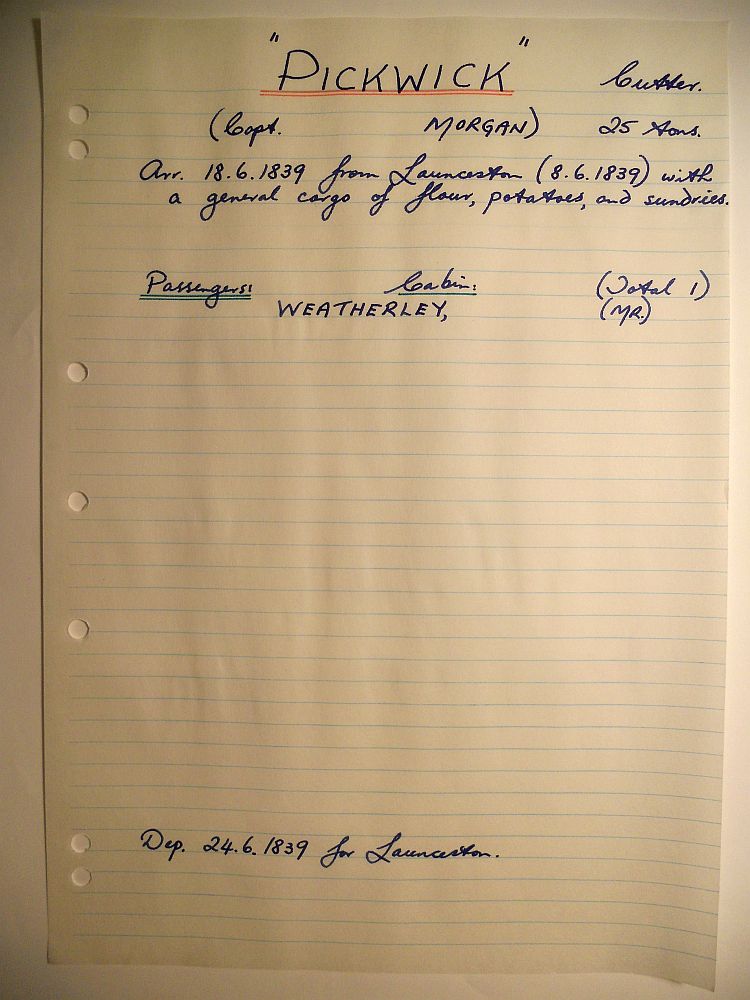 "PICKWICK" Cutter.
(Capt. MORGAN) 25 tons.
Arr. 18.6.1839 from Launceston (8.6.1839) with
a general cargo of flour, potatoes, and sundries.
Passengers: Cabin: (Total 1)
WEATHERLEY, (MR.)
Dep. 24.6.1839 for Launceston.